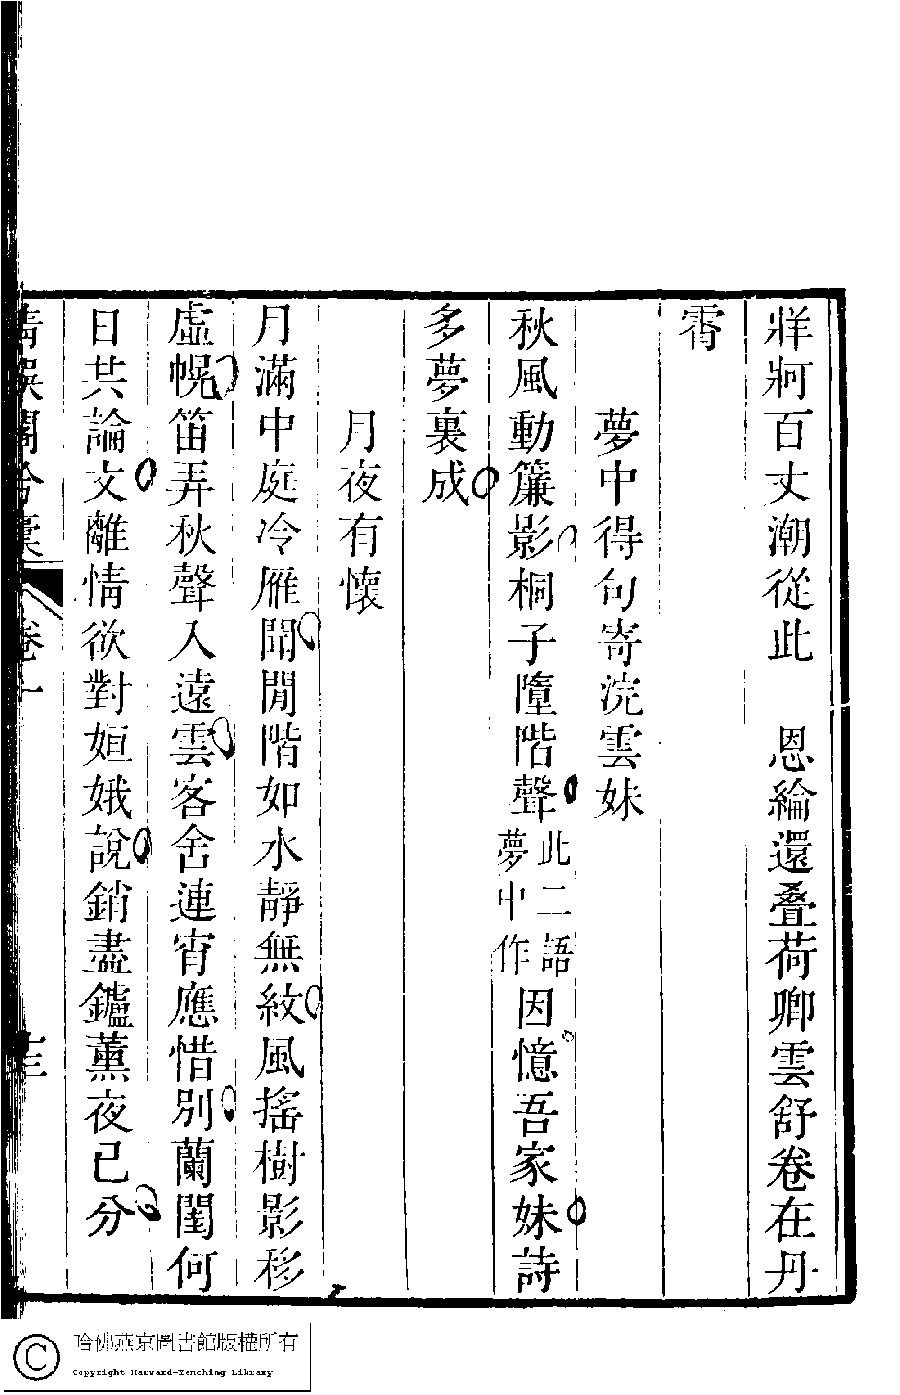 牂牁百丈潮從此　恩綸還疊荷卿雲舒卷在丹
霄
夢中得句寄浣雲妹
秋風動簾影桐子墮階聲此二語夢中作因憶吾家妹詩
多夢裏成
月夜有懷
月滿中庭冷雁聞閒階如水靜無紋風搖樹影移
虛幌笛弄秋聲入遠雲客舍連宵應惜別蘭閨何
日共論文離情欲對姮娥說銷盡鑪薰夜已分
卷一
十三
哈佛燕京圖書館版權所有
Copyright Harvard-Yenching Library